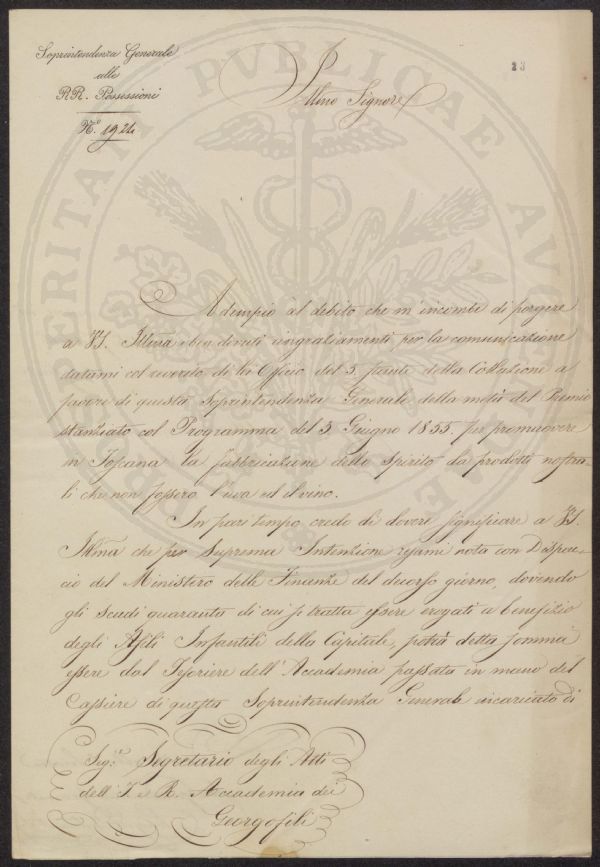 Soprintendenza Generale
alle
RR. Possessioni
N.º 1924
23
Illmo Signore
Adempio al debito che m'incombe di porgere
a VS. Illma i ben dovuti ringraziamenti per la comunicazione
datami col riverito di lei Officio del 5. stante della Collazione a
favore di questa Soprintendenza Generale della metà del Premio
stanziato col Programma del 3. Giugno 1855 per promuovere
in Toscana la fabbricazione dello spirito da prodotti nostra-
li che non fossero l'uva ed il vino.
In pari tempo credo di dovere significare a VS.
Illma che per Suprema Intenzione resami nota con Dispac-
cio del Ministero delle Finanze del decorso giorno, dovendo
gli Scudi quaranta di cui si tratta essere erogati a benefizio
degli Asili Infantili della Capitale, potrà detta somma
essere dal Tesoriere dell'Accademia passata in mano del
Cassiere di questa Soprintendenza Generale incaricato di
Sig.re Segretario degli Atti
dell'I. e R. Accademia dei
Georgofili
PROSPERITATI PUBLICAE AUGENDAE